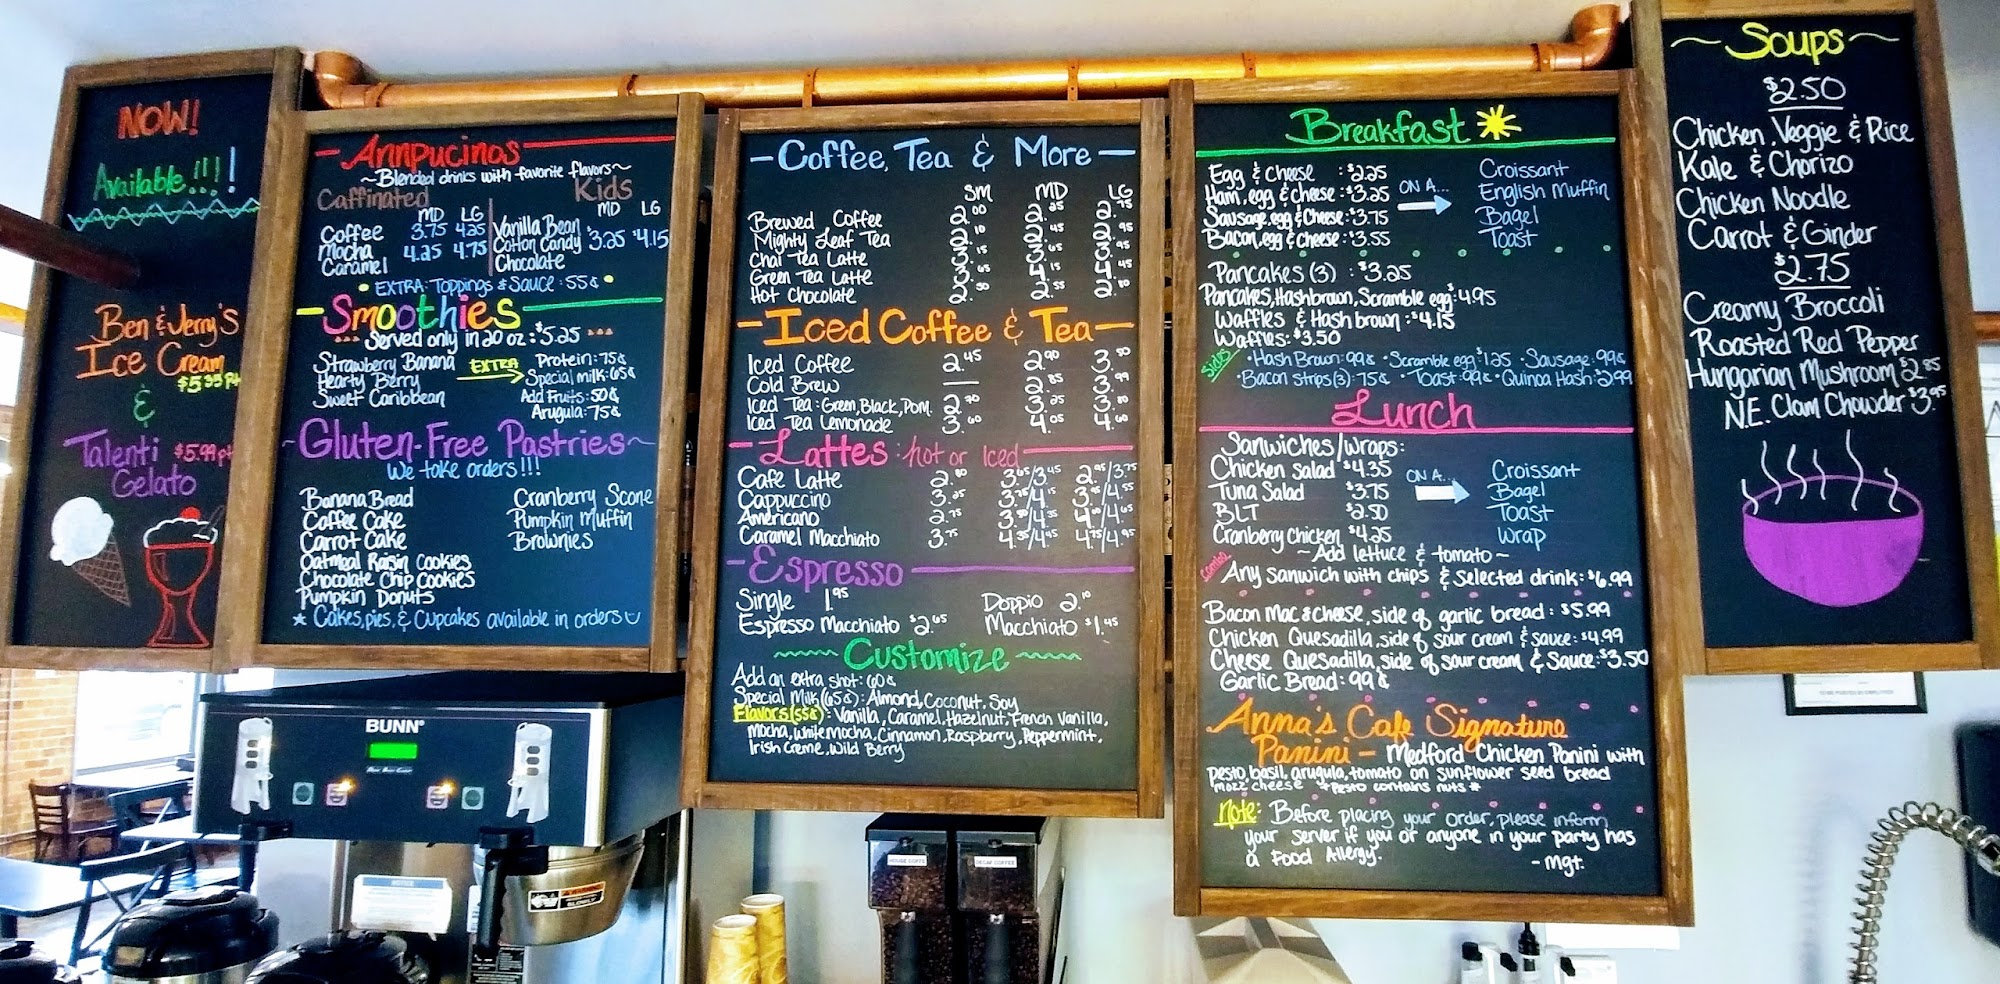 NOW!
Available!!!!
Ben & Jerry's
Ice Cream
$5.35 pt
&
Talenti $5.99 pt
Gelato
Annpucinos
~Blended drinks with favorite flavors~
Caffinated
MD LG
Coffee 3.75 4.25
Mocha 4.25 4.75
Caramel
Kids
MD LG
Vanilla Bean
Cotton Candy $3.25 $4.15
Chocolate
EXTRA: Toppings & Sauce: 55¢
Smoothies
Served only in 20 oz: $5.25
Strawberry Banana
Hearty Berry
Sweet Caribbean
EXTRA
Protein: 75¢
Special milk: 65¢
Add Fruits: 50¢
Arugula: 75¢
~Gluten-Free Pastries~
We take orders!!!
Banana Bread
Coffee Cake
Carrot Cake
Oatmeal Raisin Cookies
Chocolate Chip Cookies
Pumpkin Donuts
Cranberry Scone
Pumpkin Muffin
Brownies
* Cakes, pies, & Cupcakes available in orders
BUNN
- Coffee, Tea & More -
SM MD LG
Brewed Coffee 2.00 2.25 2.75
Mighty Leaf Tea 2.10 2.45 2.95
Chai Tea Latte 3.15 3.65 3.95
Green Tea Latte 3.65 4.15 4.45
Hot Chocolate 2.50 2.55 2.80
- Iced Coffee & Tea -
Iced Coffee 2.45 2.90 3.50
Cold Brew — 2.85 3.99
Iced Tea: Green, Black, Pom. 2.70 3.25 3.80
Iced Tea Lemonade 3.60 4.05 4.60
- Lattes: hot or Iced
Cafe Latte 2.80 3.65/3.45 2.95/3.75
Cappuccino 3.25 3.75/4.15 3.95/4.55
Americano 2.75 3.50/4.35 4.00/4.65
Caramel Macchiato 3.75 4.35/4.45 4.75/4.95
- Espresso
Single 1.95 Doppio 2.10
Espresso Macchiato $2.65 Macchiato $1.45
Customize
Add an extra shot: 60¢
Special Milk (65¢): Almond, Coconut, Soy
Flavors (55¢): Vanilla, Caramel, Hazelnut, French Vanilla,
Mocha, White Mocha, Cinnamon, Raspberry, Peppermint,
Irish Creme, Wild Berry
HOUSE COFFE
DECAF COFFEE
Breakfast
Egg & Cheese : $2.25
Ham, egg & cheese : $3.25
Sausage, egg & Cheese : $3.75
Bacon, egg & cheese : $3.55
ON A...
Croissant
English Muffin
Bagel
Toast
Pancakes (3) : $3.25
Pancakes, Hashbrown, Scramble egg: $4.95
Waffles & Hash brown : $4.15
Waffles: $3.50
Sides
• Hash Brown: 99¢ • Scramble egg: $1.25 • Sausage: 99¢
• Bacon strips (3): 75¢ • Toast: 99¢ • Quinoa Hash: $2.99
Lunch
Sanwiches/wraps:
Chicken Salad $4.35
Tuna Salad $3.75
BLT $2.50
Cranberry Chicken $4.25
ON A...
Croissant
Bagel
Toast
Wrap
~ Add lettuce & tomato ~
Combo
Any sanwich with chips & selected drink: $6.99
Bacon Mac & Cheese, side of garlic bread : $5.99
Chicken Quesadilla, side of sour cream & sauce: $4.99
Cheese Quesadilla, side of sour cream & Sauce: $3.50
Garlic Bread: 99¢
Anna's Cafe Signature
Panini - Medford Chicken Panini with
pesto, basil, arugula, tomato on sunflower seed bread
mozz cheese *Pesto contains nuts*
Note: Before placing your order, please inform
your server if you or anyone in your party has
a Food Allergy.
- Mgt.
~ Soups ~
$2.50
Chicken, Veggie & Rice
Kale & Chorizo
Chicken Noodle
Carrot & Ginder
$2.75
Creamy Broccoli
Roasted Red Pepper
Hungarian Mushroom $2.85
N.E. Clam Chowder $3.95